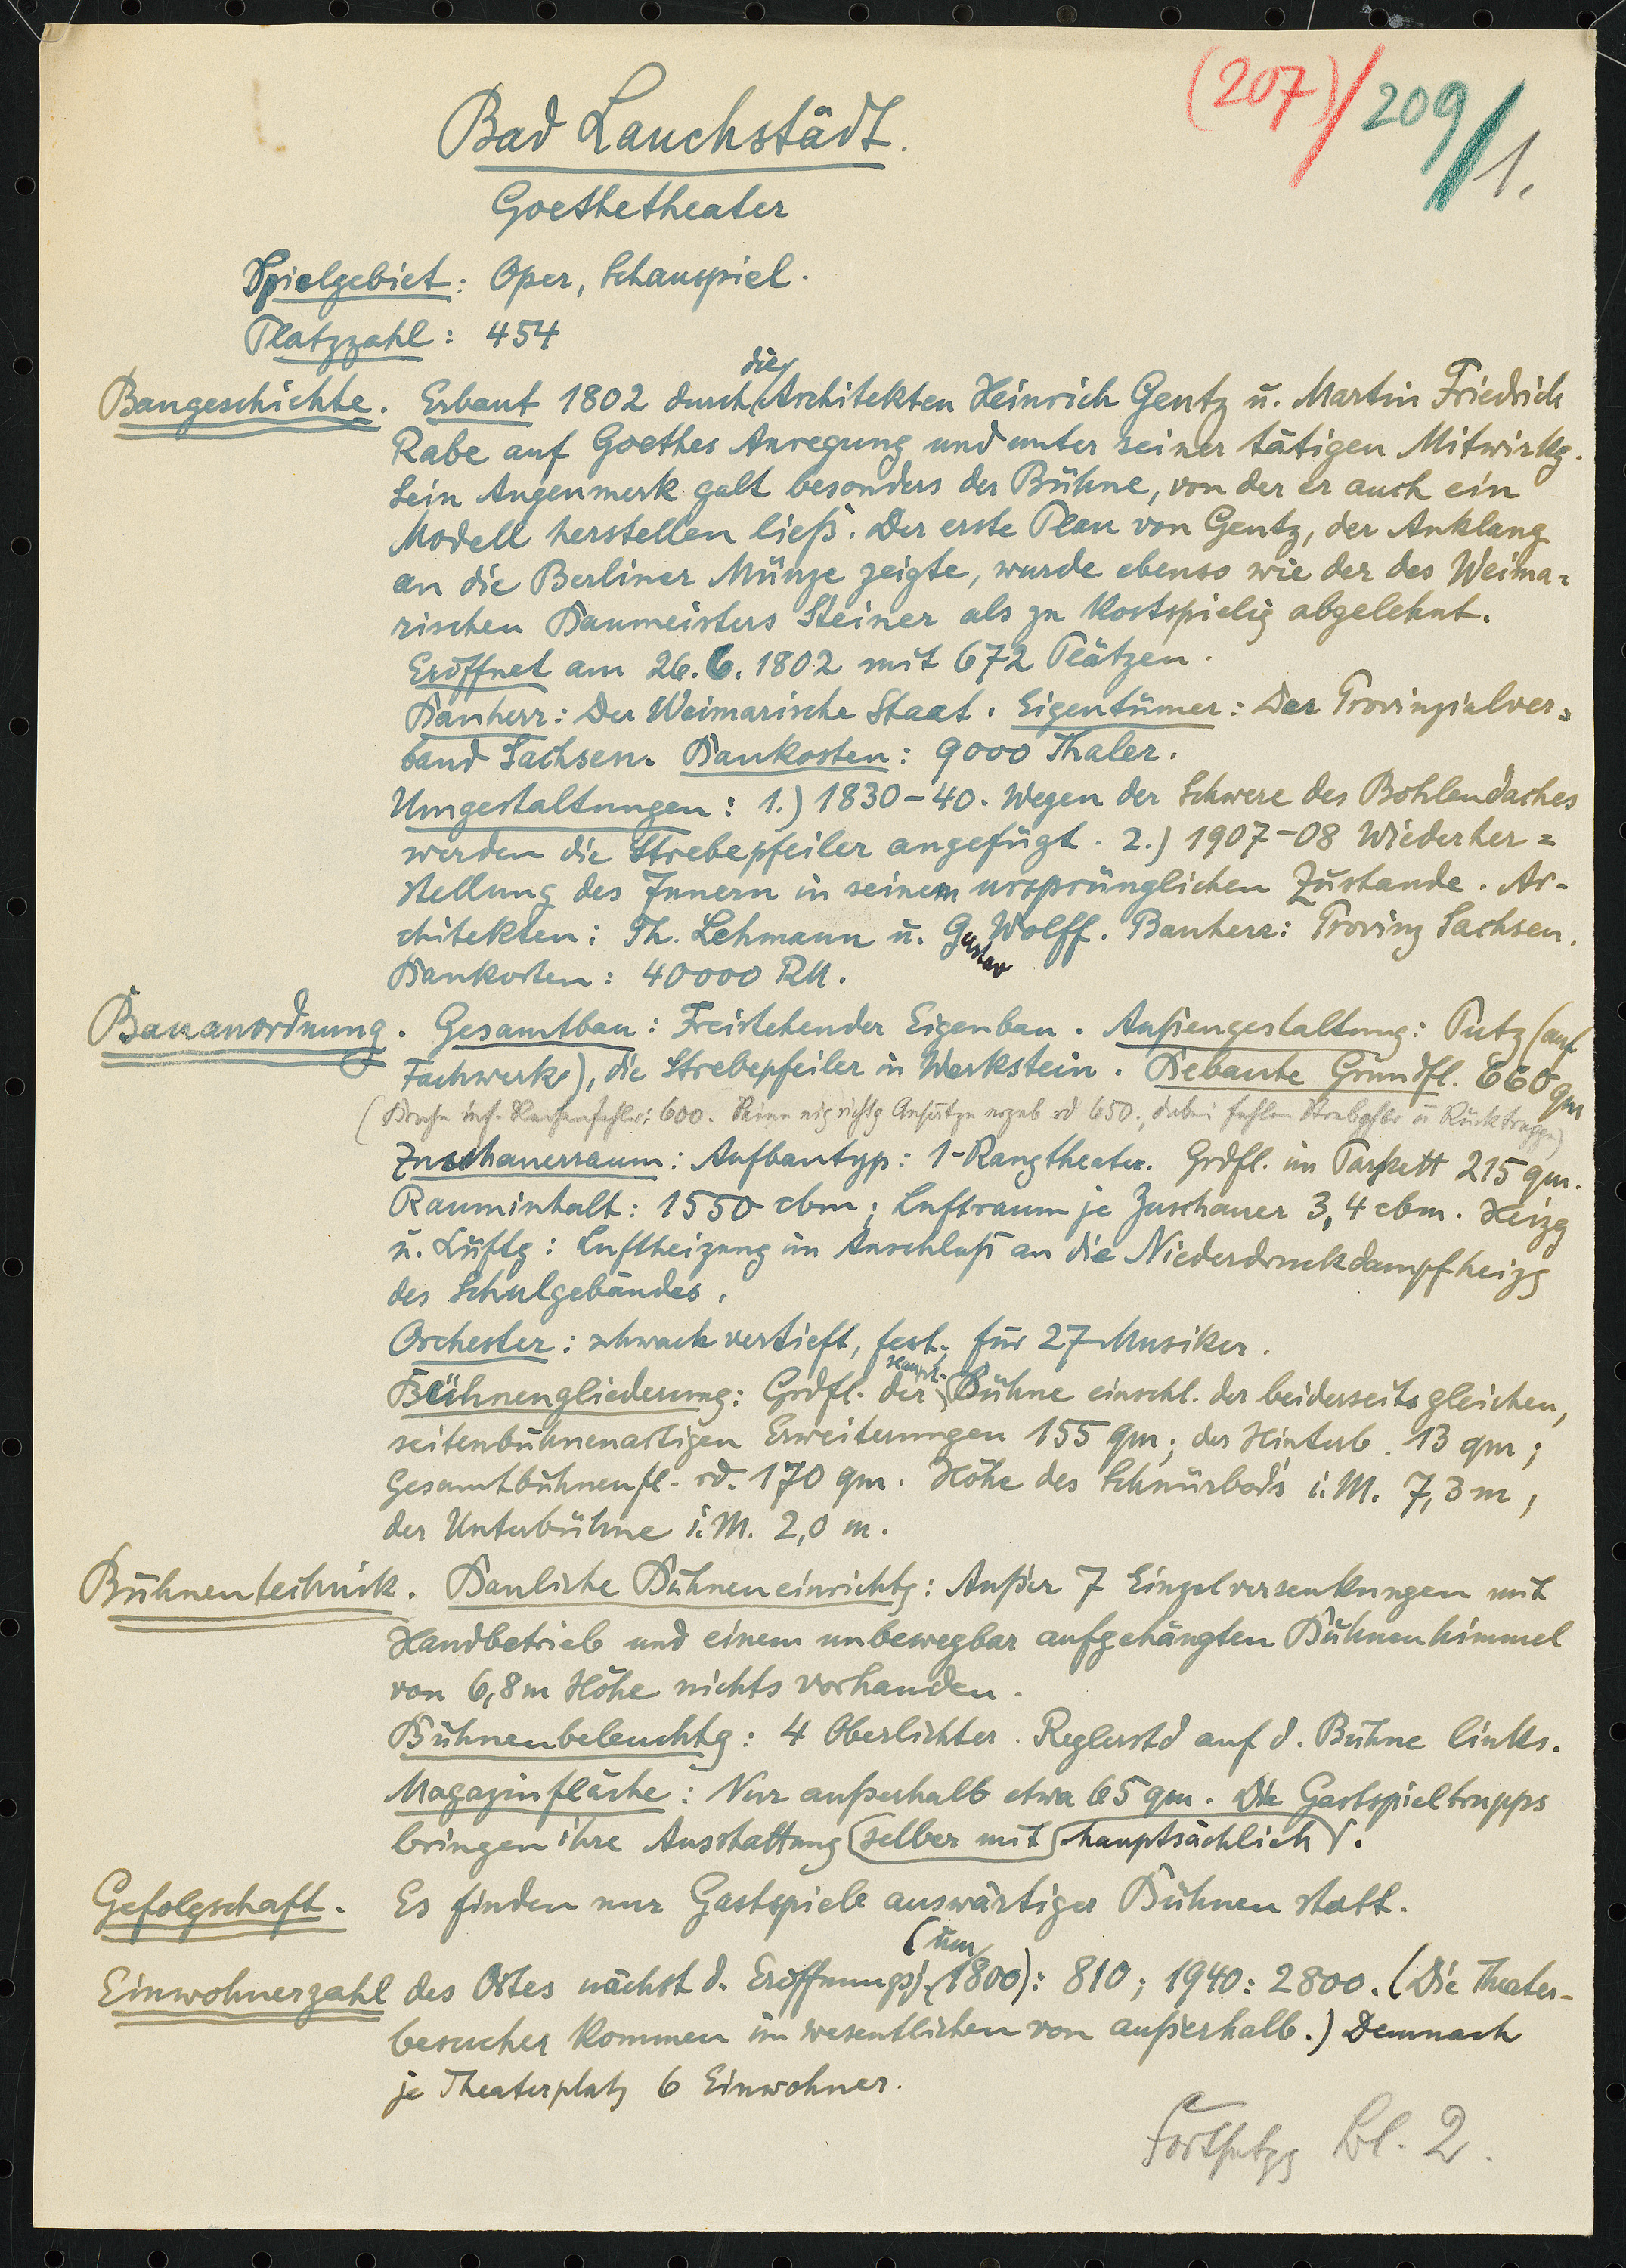 (207)/209/1.
Bad Lauchstädt.
Goethetheater
Spielgebiet: Oper, Schauspiel.
Platzzahl: 454
Baugeschichte. Erbaut 1802 durch die Architekten Heinrich Gentz u. Martin Friedrich
Rabe auf Goethes Anregung und unter seiner tätigen Mitwirkg.
Sein Augenmerk galt besonders der Bühne, von der er auch ein
Modell herstellen ließ. Der erste Plan von Gentz, der Anklang
an die Berliner Münze zeigte, wurde ebenso wie der des Weima=
rischen Baumeisters Steiner als zu kostspielig abgelehnt.
Eröffnet am 26.6.1802 mit 672 Plätzen.
Bauherr: Der Weimarische Staat. Eigentümer: Der Provinzialver=
band Sachsen. Baukosten: 9000 Thaler.
Umgestaltungen: 1.) 1830-40. Wegen der Schwere des Bohlendaches
werden die Strebepfeiler angefügt. 2.) 1907-08 Wiederher=
stellung des Innern in seinem ursprünglichen Zustande. Ar-
chitekten: Th. Lehmann u. Gustav Wolff. Bauherr: Provinz Sachsen.
Baukosten: 40000 RM.
Bauanordnung. Gesamtbau: Freistehender Eigenbau. Außengestaltung: Putz (auf
Fachwerk), die Strebepfeiler in Werkstein. Bebaute Grundfl. 660 qm
(600. 650.
Zuschauerraum: Aufbautyp: 1-Rangtheater. Grdfl. im Parkett 215 qm.
Rauminhalt: 1550 cbm; Luftraum je Zuschauer 3,4 cbm. Heizg
u. Lüftg: Luftheizung im Anschluß an die Niederdruckdampfheizg
des Schulgebäudes.
Orchester: schwach vertieft, fest, für 27 Musiker.
Bühnengliederung: Grdfl. der Haupt-Bühne einschl. der beiderseits gleichen,
seitenbühnenartigen Erweiterungen 155 qm; der Hinterb. 13 qm;
Gesamtbühnenfl. rd. 170 qm. Höhe des Schnürbod's i.M. 7,3 m;
der Unterbühne i.M. 2,0 m.
Bühnentechnik. Bauliche Bühneneinrichtg: Außer 7 Einzelversenkungen mit
Handbetrieb und einem unbewegbar aufgehängten Bühnenhimmel
von 6,8 m Höhe nichts vorhanden.
Bühnenbeleuchtg: 4 Oberlichter. Reglerstd auf d. Bühne links.
Magazinfläche: Nur außerhalb etwa 65 qm. Die Gastspieltrupps
bringen ihre Ausstattung selber mit hauptsächlich.
Gefolgschaft. Es finden nur Gastspiele auswärtiger Bühnen statt.
Einwohnerzahl des Ortes nächst d. Eröffnungsj. (um 1800): 810; 1940: 2800. (Die Theater-
besucher kommen im wesentlichen von außerhalb.) Demnach
je Theaterplatz 6 Einwohner.
Fortsetzg Bl. 2.